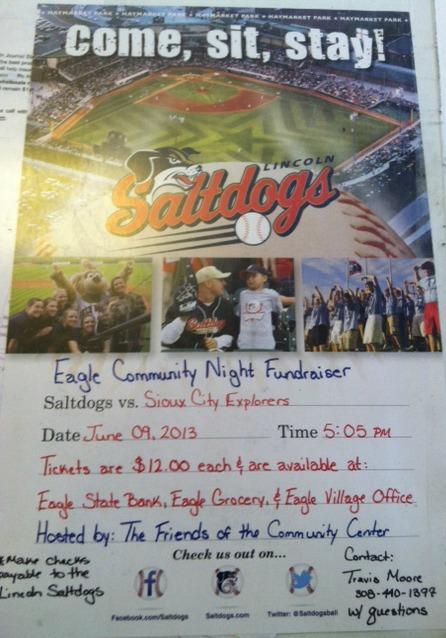 HAYMARKET PARK ★ HAYMARKET PARK ★ HAYMARKET PARK ★ HAYMARKET PARK
Come, sit, stay!
LINCOLN
Saltdogs
Eagle Community Night Fundraiser
Saltdogs vs. Sioux City Explorers
Date June 09, 2013 Time 5:05 PM
Tickets are $12.00 each & are available at:
Eagle State Bank, Eagle Grocery, & Eagle Village Office
Hosted by: The Friends of the Community Center
Check us out on...
*Make checks
payable to the
Lincoln Saltdogs
Facebook.com/Saltdogs
Saltdogs.com
Twitter: @Saltdogsball
Contact:
Travis Moore
308-440-1397
w/ questions